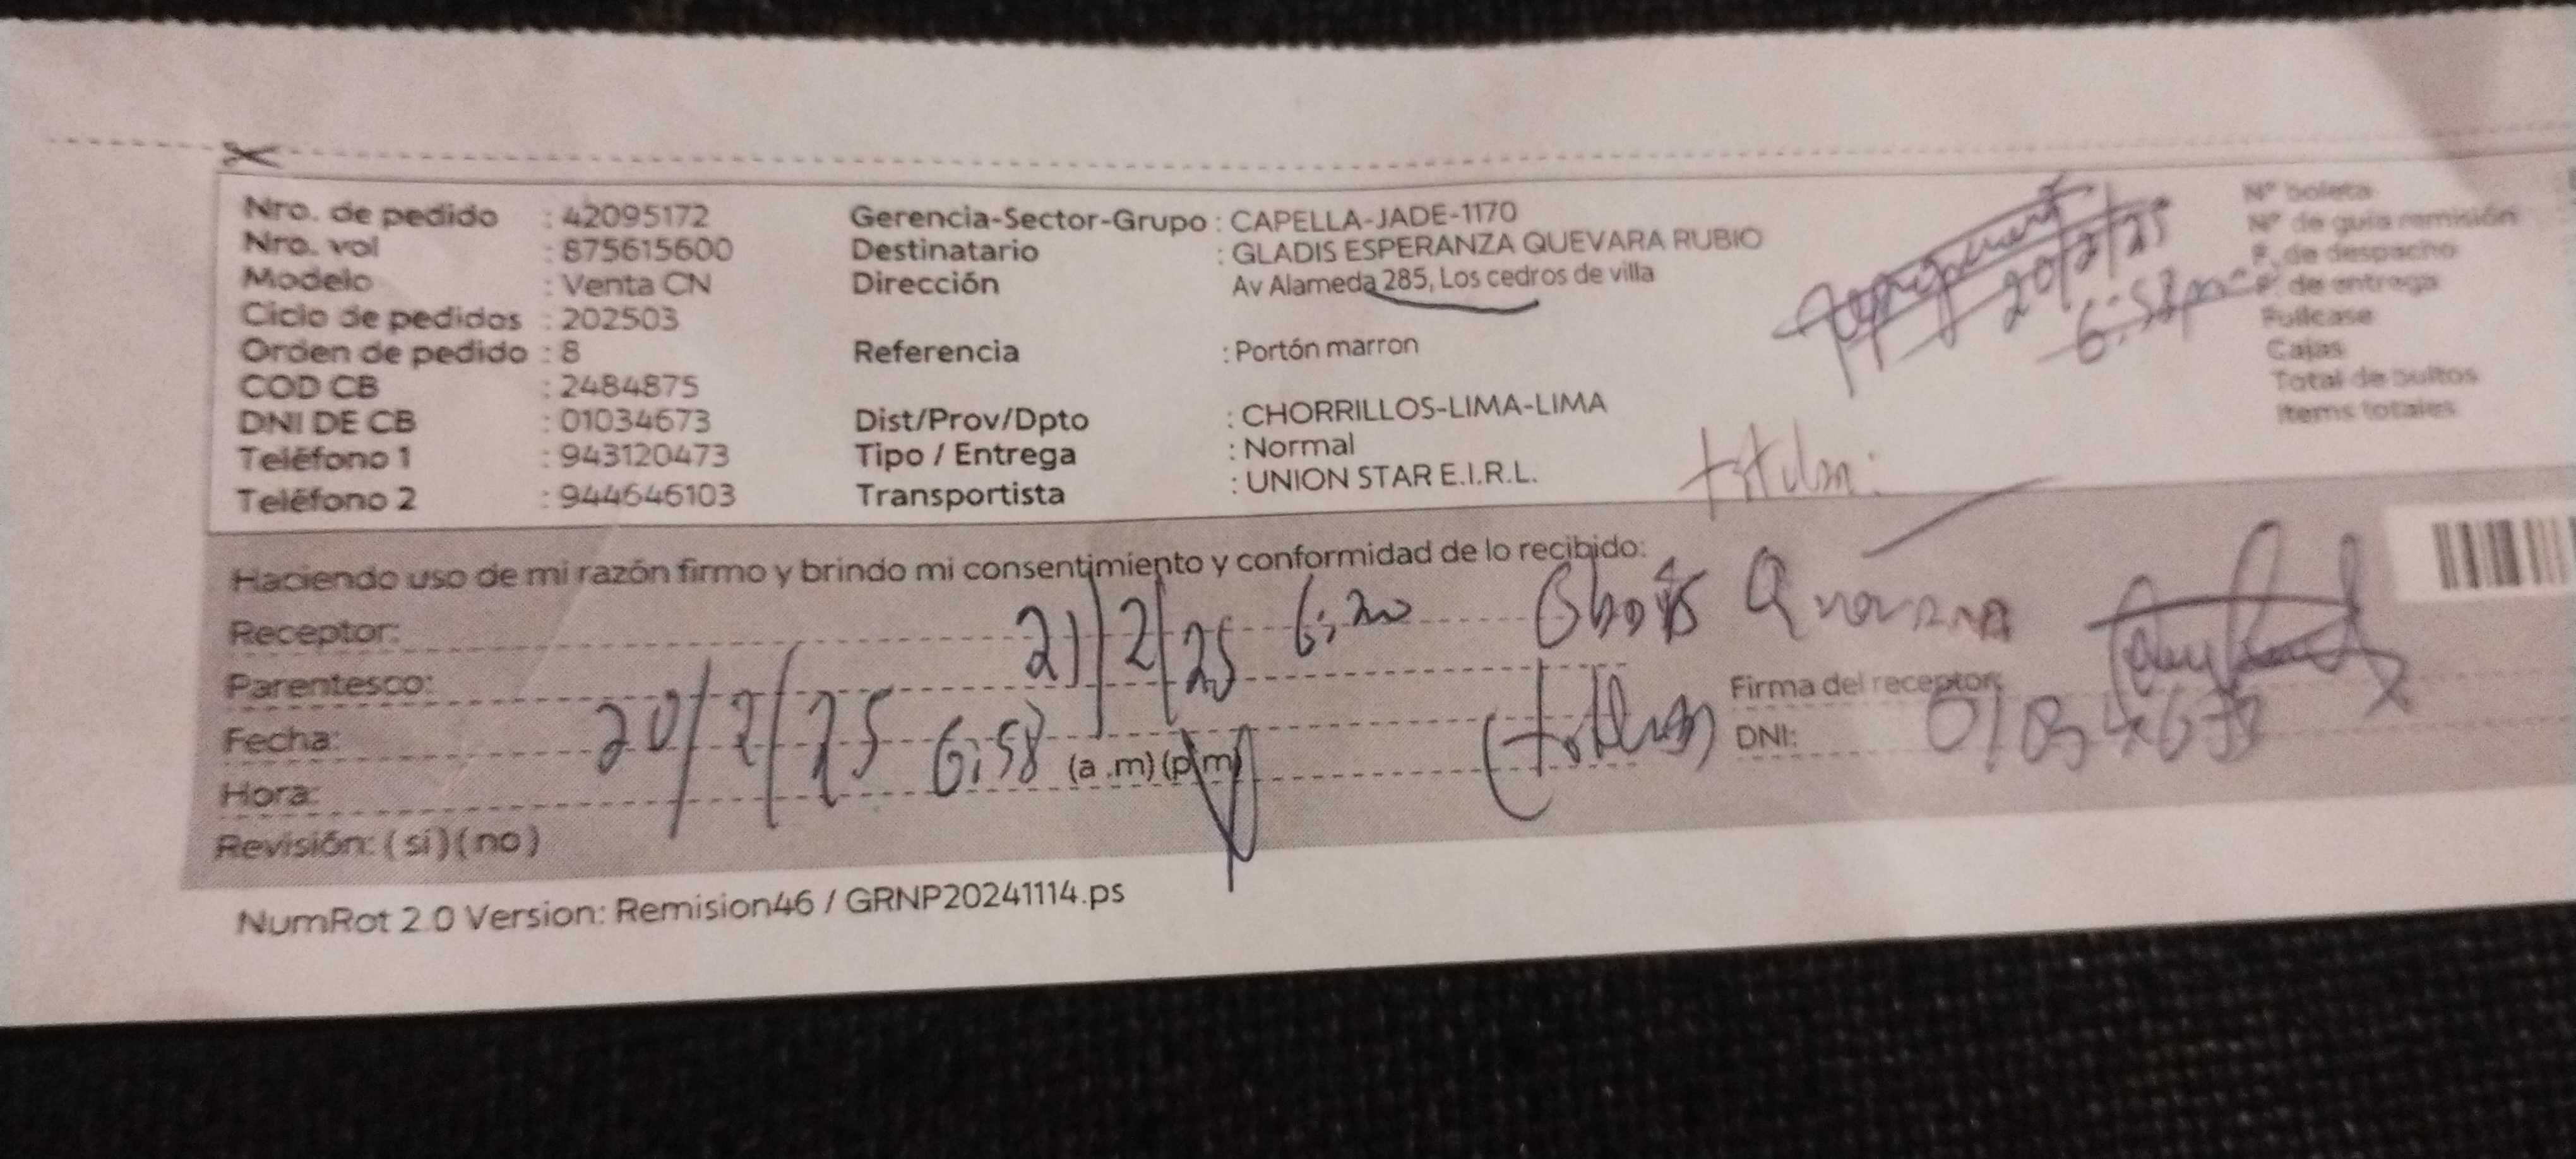 Nro. de pedido : 42095172
Nro. vol : 875615600
Modelo : Venta CN
Ciclo de pedidos : 202503
Orden de pedido : 8
COD CB : 2484875
DNI DE CB : 01034673
Teléfono 1 : 943120473
Teléfono 2 : 944646103
Gerencia-Sector-Grupo : CAPELLA-JADE-1170
Destinatario : GLADIS ESPERANZA QUEVARA RUBIO
Dirección Av Alameda 285, Los cedros de villa
Referencia : Portón marron
Dist/Prov/Dpto : CHORRILLOS-LIMA-LIMA
Tipo / Entrega : Normal
Transportista : UNION STAR E.I.R.L.
20/2/25
6:58pm
N° boleta
N° de guia remisión
F. de despacho
F. de entrega
Fullcase
Cajas
Total de bultos
Items totales
Haciendo uso de mi razón firmo y brindo mi consentimiento y conformidad de lo recibido:
Receptor: 21/2/25
Parentesco:
Fecha: 20/2/25 6:58 (a .m) (p m)
Hora:
Revisión: ( si ) ( no )
Firma del receptor:
DNI:
NumRot 2.0 Version: Remision46 / GRNP20241114.ps